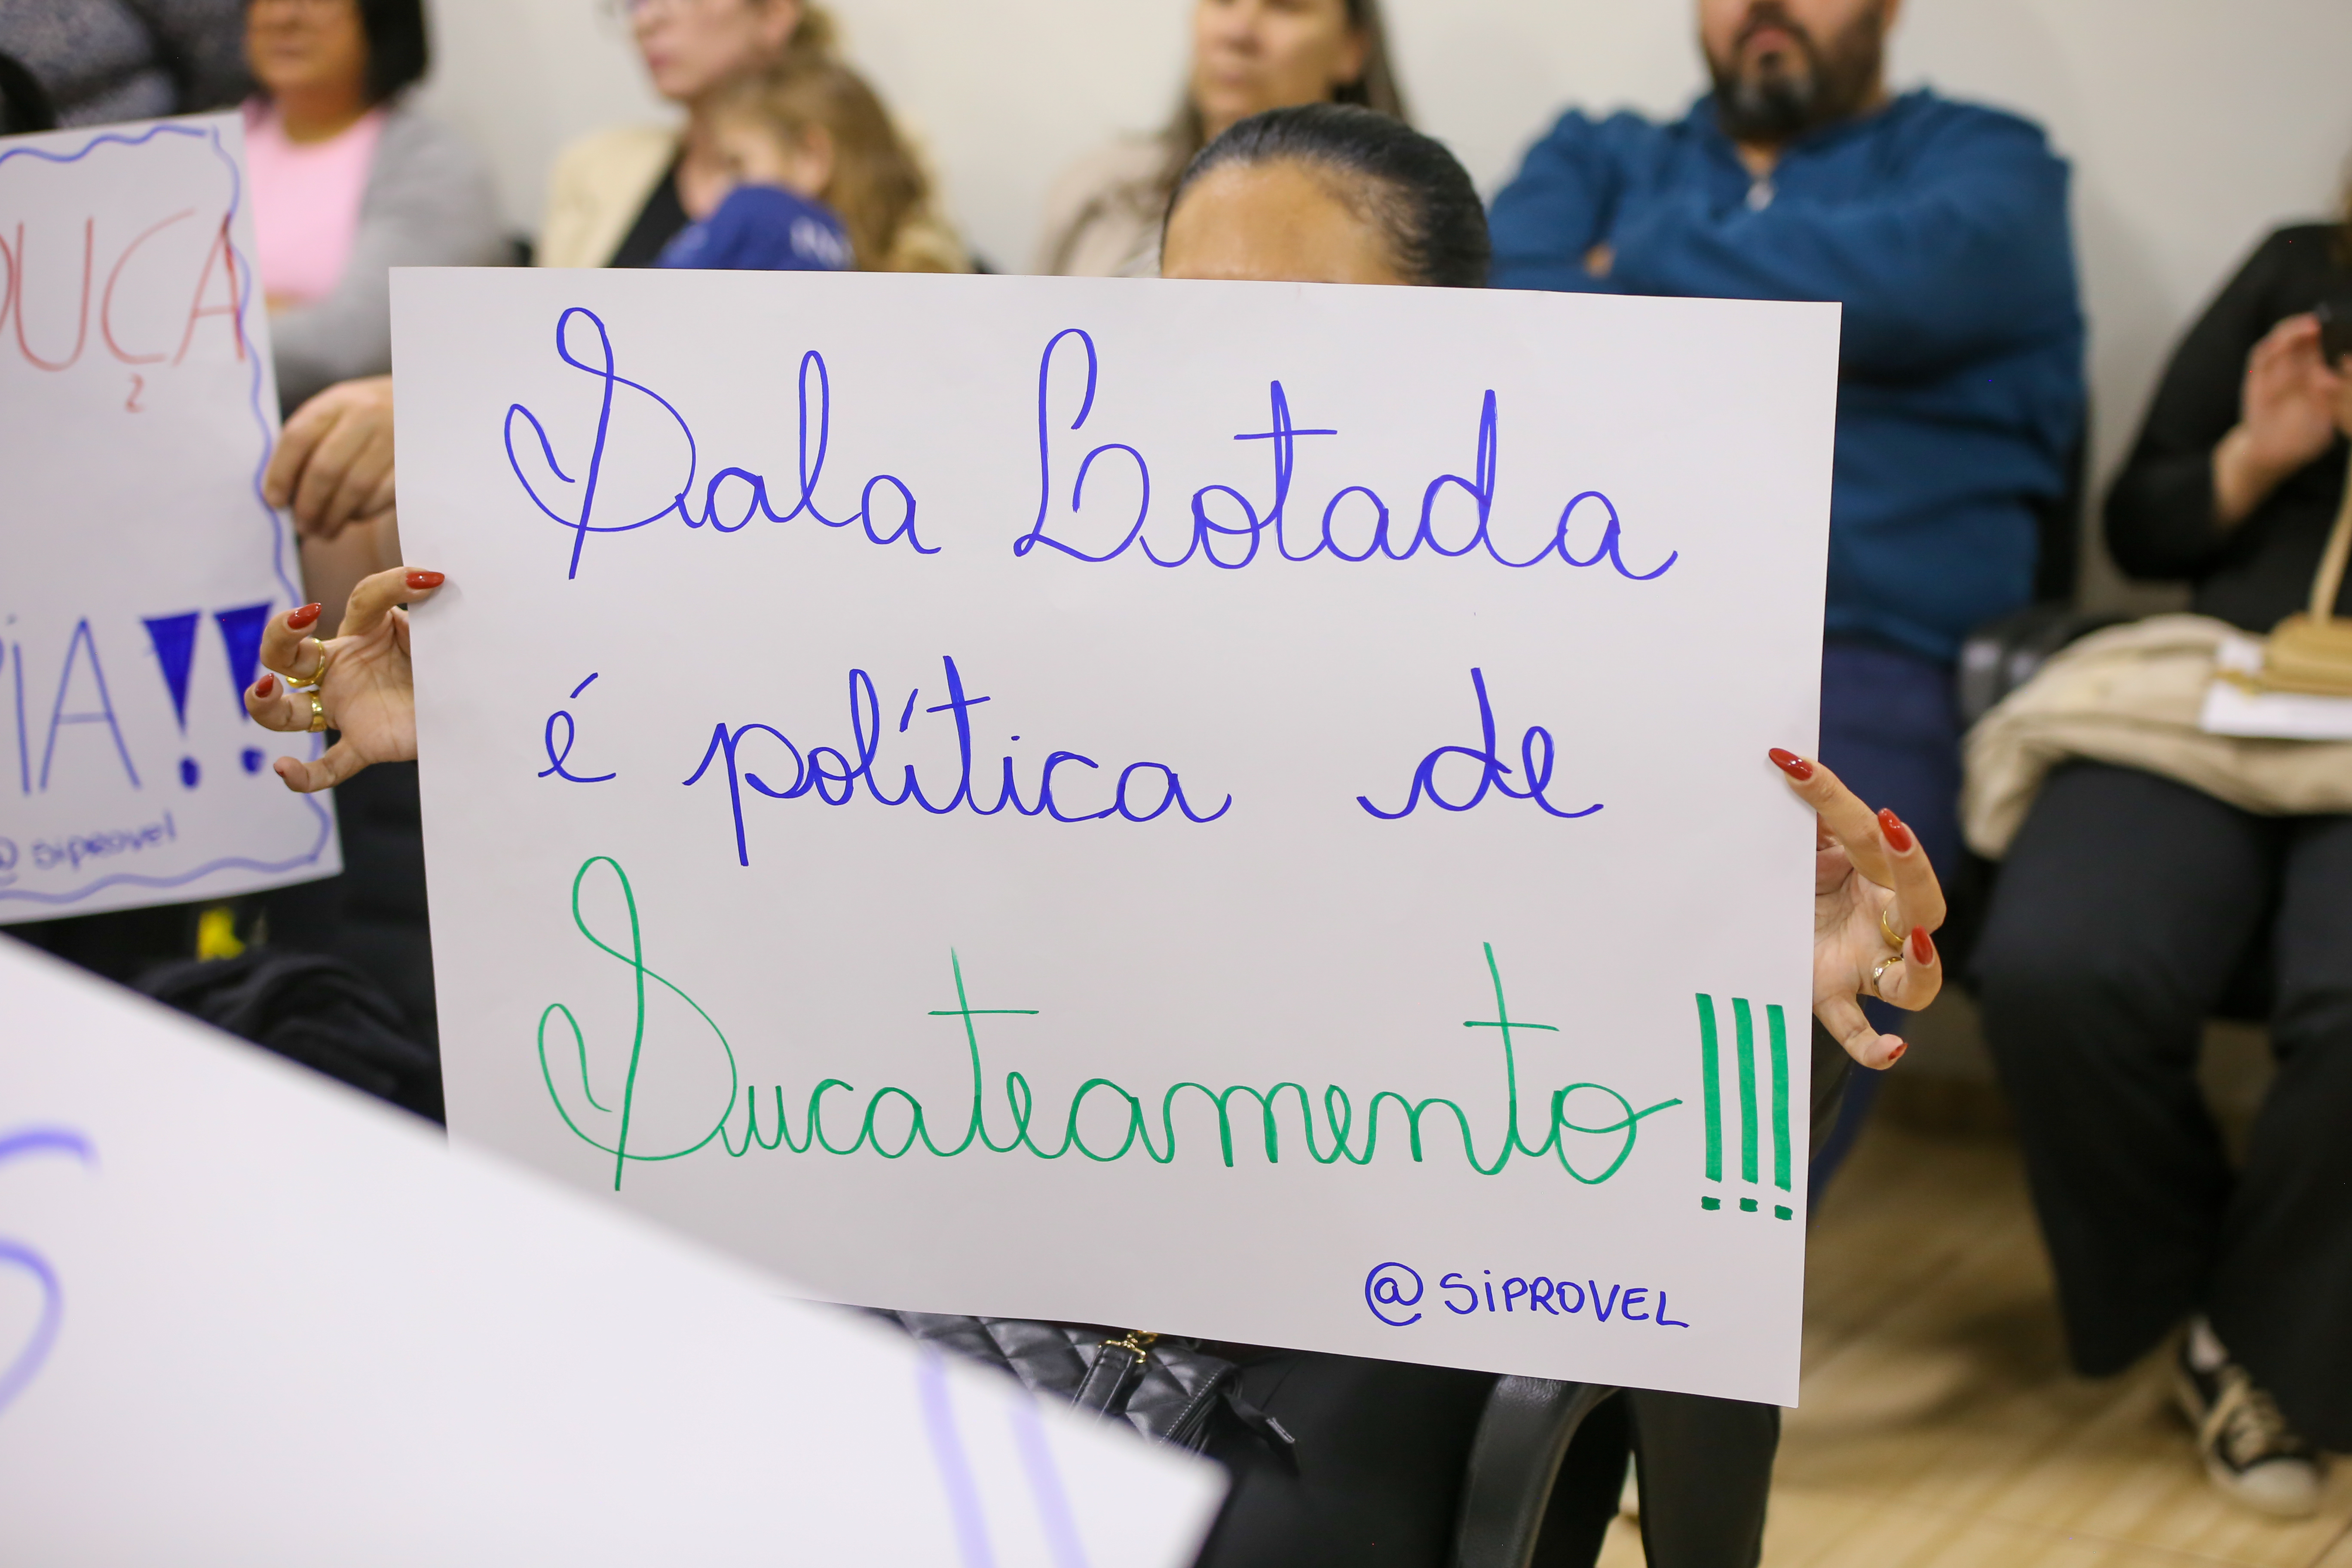 UÇA
IA!!
@siprovel
Sala Lotada
é política de
Sucateamento!!!
@SIPROVEL